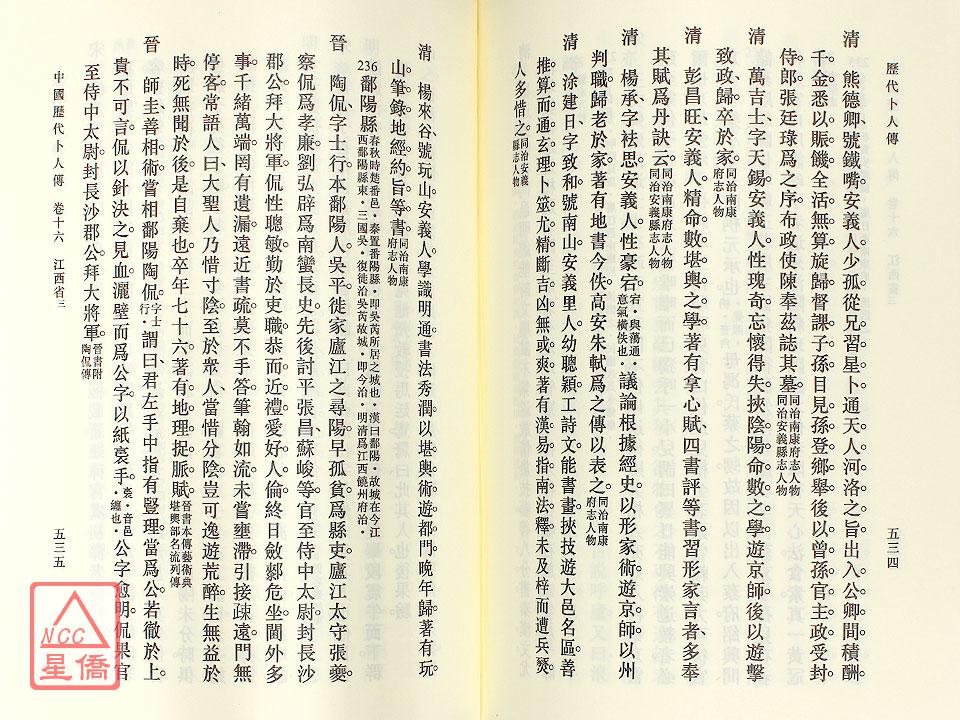 歷代卜人傳
五三四
清　熊德卿、號鐵嘴、安義人。少孤、從兄習星卜、通天人河洛之旨。出入公卿間、積酬
千金、悉以賑饑、全活無算。旋歸督課子孫、目見孫登鄉舉、後以曾孫官主政、受封
侍郎。張廷瑑爲之序、布政使陳奉茲誌其墓。同治南康府志人物 同治安義縣志人物
清　萬吉士、字天錫、安義人。性瑰奇、忘懷得失、挾陰陽命數之學、遊京師、後以遊擊
致政、歸卒於家。同治南康府志人物
清　彭昌旺、安義人。精命數堪輿之學、著有拿心賦、四書評等書、習形家言者、多奉
其賦爲丹訣云。同治南康府志人物 同治安義縣志人物
清　楊承、字袪思、安義人。性豪宕、宕・與蕩通・意氣橫佚也・議論根據經史。以形家術遊京師、以州
判職歸老於家、著有地書。今佚。高安朱軾爲之傳以表之。同治南康府志人物
清　涂建日、字致和、號南山、安義里人。幼聰穎、工詩文、能書畫、挾技遊大邑名區、善
推算、而通玄理、卜筮尤精、斷吉凶無或爽。著有漢易指南法釋、未及梓而遭兵燹、
人多惜之。同治安義縣志人物
清　楊來谷、號玩山、安義人。學識明通、書法秀潤。以堪輿術遊都門、晚年歸、著有玩
山筆錄、地經約旨等書。同治南康府志人物
236 鄱陽縣 春秋時楚番邑・秦置番陽縣・即吳芮所居之城也・漢曰鄱陽・故城在今江西鄱陽縣東・三國吳・復徙治吳芮故城・即今治・明清爲江西饒州府治・
晉　陶侃、字士行、本鄱陽人。吳平、徙家廬江之尋陽。早孤貧、爲縣吏。廬江太守張夔、
察侃爲孝廉。劉弘辟爲南蠻長史、先後討平張昌、蘇峻等。官至侍中太尉、封長沙
郡公、拜大將軍。侃性聰敏、勤於吏職、恭而近禮、愛好人倫。終日斂膝危坐、閫外多
事、千緒萬端、罔有遺漏。遠近書疏、莫不手答、筆翰如流、未嘗壅滯。引接疎遠、門無
停客。常語人曰、大聖人乃惜寸陰、至於衆人、當惜分陰、豈可逸遊荒醉、生無益於
時、死無聞於後、是自棄也。卒年七十六。著有地理捉脈賦。晉書本傳 藝術典堪輿部名流列傳
晉　師圭、善相術。嘗相鄱陽陶侃、字士行・謂曰、君左手中指有豎理、當爲公、若徹於上、
貴不可言。侃以針決之見血、灑壁而爲公字、以紙裛手、裛・音邑・纏也・公字愈明。侃果官
至侍中太尉、封長沙郡公、拜大將軍。晉書附陶侃傳
中國歷代卜人傳　卷十六　江西省三
五三五
NCC
星僑